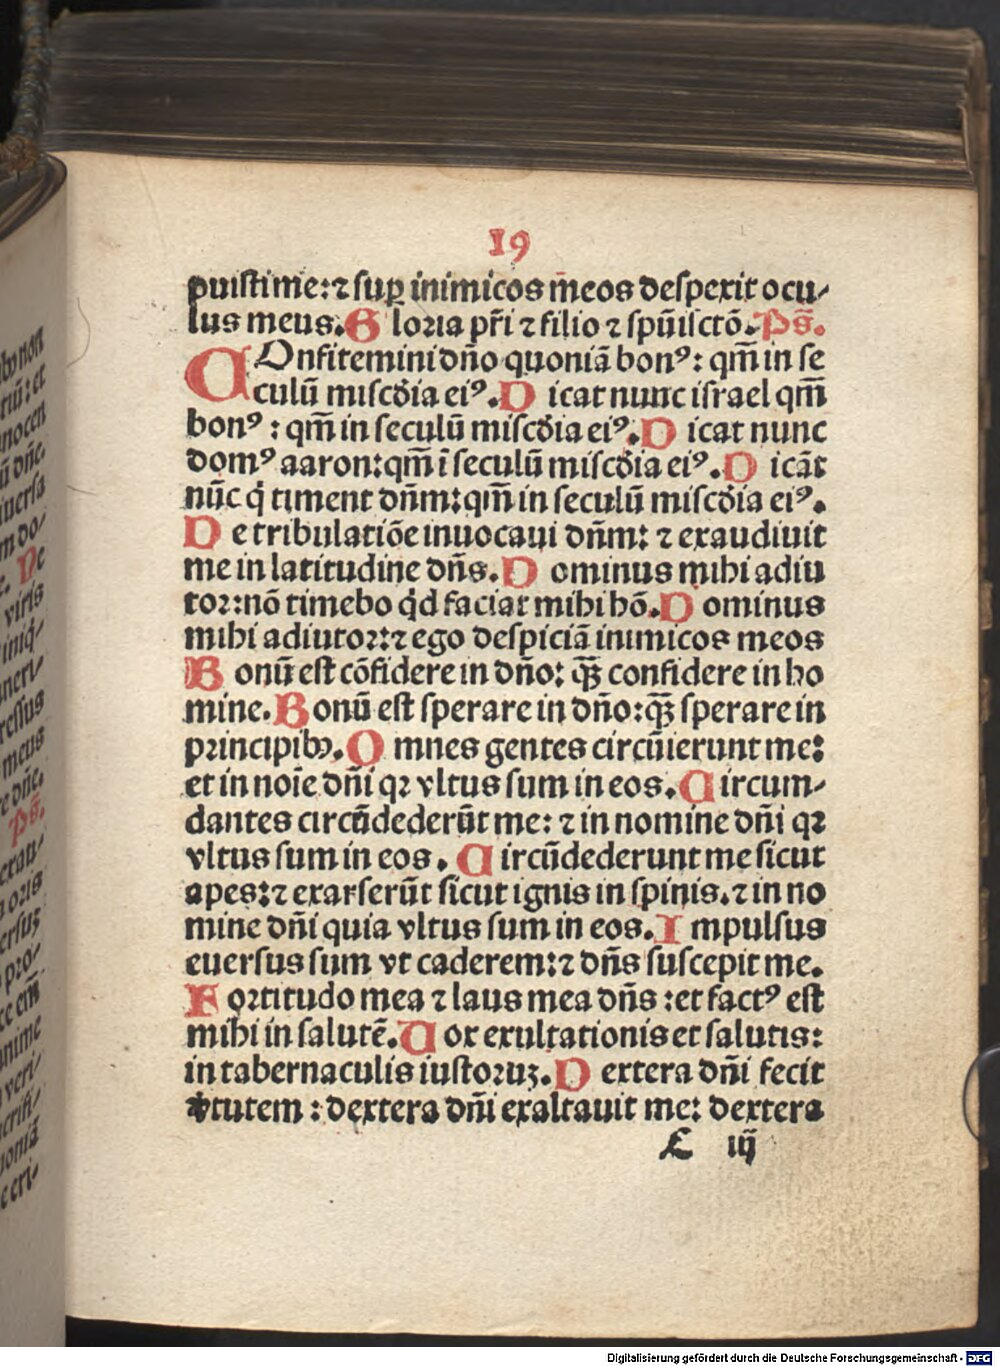 19
puisti me: ⁊ suꝑ inimicos m̄eos despexit ocu⸗
lus meus. Gloria pr̄i ⁊ filio ⁊ spūi sctō. Ps̄.
COnfitemini dn̄o quoniā bonꝰ: qm̄ in se
culū miscd̄ia eiꝰ. Dicat nunc israel qm̄
bonꝰ : qm̄ in seculū miscd̄ia eiꝰ. Dicat nunc
domꝰ aaron: qm̄ ī seculū miscd̄ia eiꝰ. Dicāt
nūc q̇ timent dn̄m: qm̄ in seculū miscd̄ia eiꝰ.
De tribulatiōe inuocaui dn̄m: ⁊ exaudiuit
me in latitudine dn̄s. Dominus mihi adiu
tor: nō timebo q̇d faciat mihi hō. Dominus
mihi adiutor: ⁊ ego despiciā inimicos meos
Bonū est cōfidere in dn̄o: q̄ꝫ confidere in ho
mine. Bonū est sperare in dn̄o: q̄ꝫ sperare in
principibꝰ. Omnes gentes circūierunt me:
et in noīe dn̄i qꝛ vltus sum in eos. Circum⸗
dantes circūdederūt me: ⁊ in nomine dn̄i qꝛ
vltus sum in eos. Circūdederunt me sicut
apes: ⁊ exarserūt sicut ignis in spinis. ⁊ in no
mine dn̄i quia vltus sum in eos. Impulsus
euersus sum vt caderem: ⁊ dn̄s suscepit me.
Fortitudo mea ⁊ laus mea dn̄s : et factꝰ est
mihi in salutē. Uox exultationis et salutis:
in tabernaculis iustoruꝫ. Dextera dn̄i fecit
v̓tutem : dextera dn̄i exaltauit me: dextera
c iij
Digitalisierung gefördert durch die Deutsche Forschungsgemeinschaft - DFG